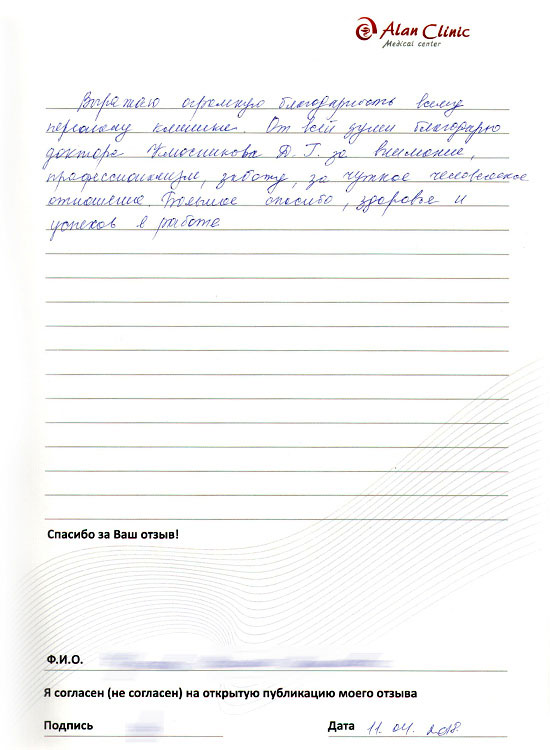 Alan Clinic
Medical center
Выражаю огромную благодарность всему
персоналу клиники. От всей души благодарю
доктора Д. Г. за внимание,
профессионализм, заботу, за чуткое человеческое
отношение. Большое спасибо, здоровья и
успехов в работе
Спасибо за Ваш отзыв!
Ф.И.О.
Я согласен (не согласен) на открытую публикацию моего отзыва
Подпись
Дата 11.04.2018